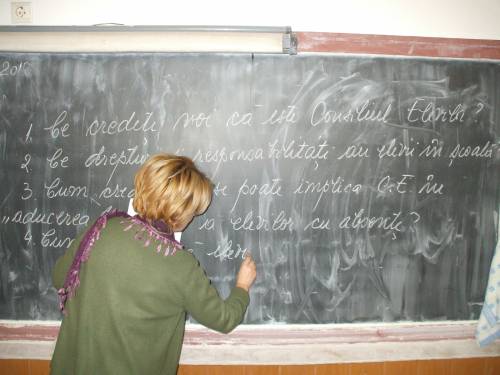 201
1. Ce credeți voi că este Consiliul Elevilor?
2. Ce drepturi responsabilități au elevii în școală?
3. Cum se poate implica C.E. în
„aducerea a elevilor cu absențe?
4. Cum